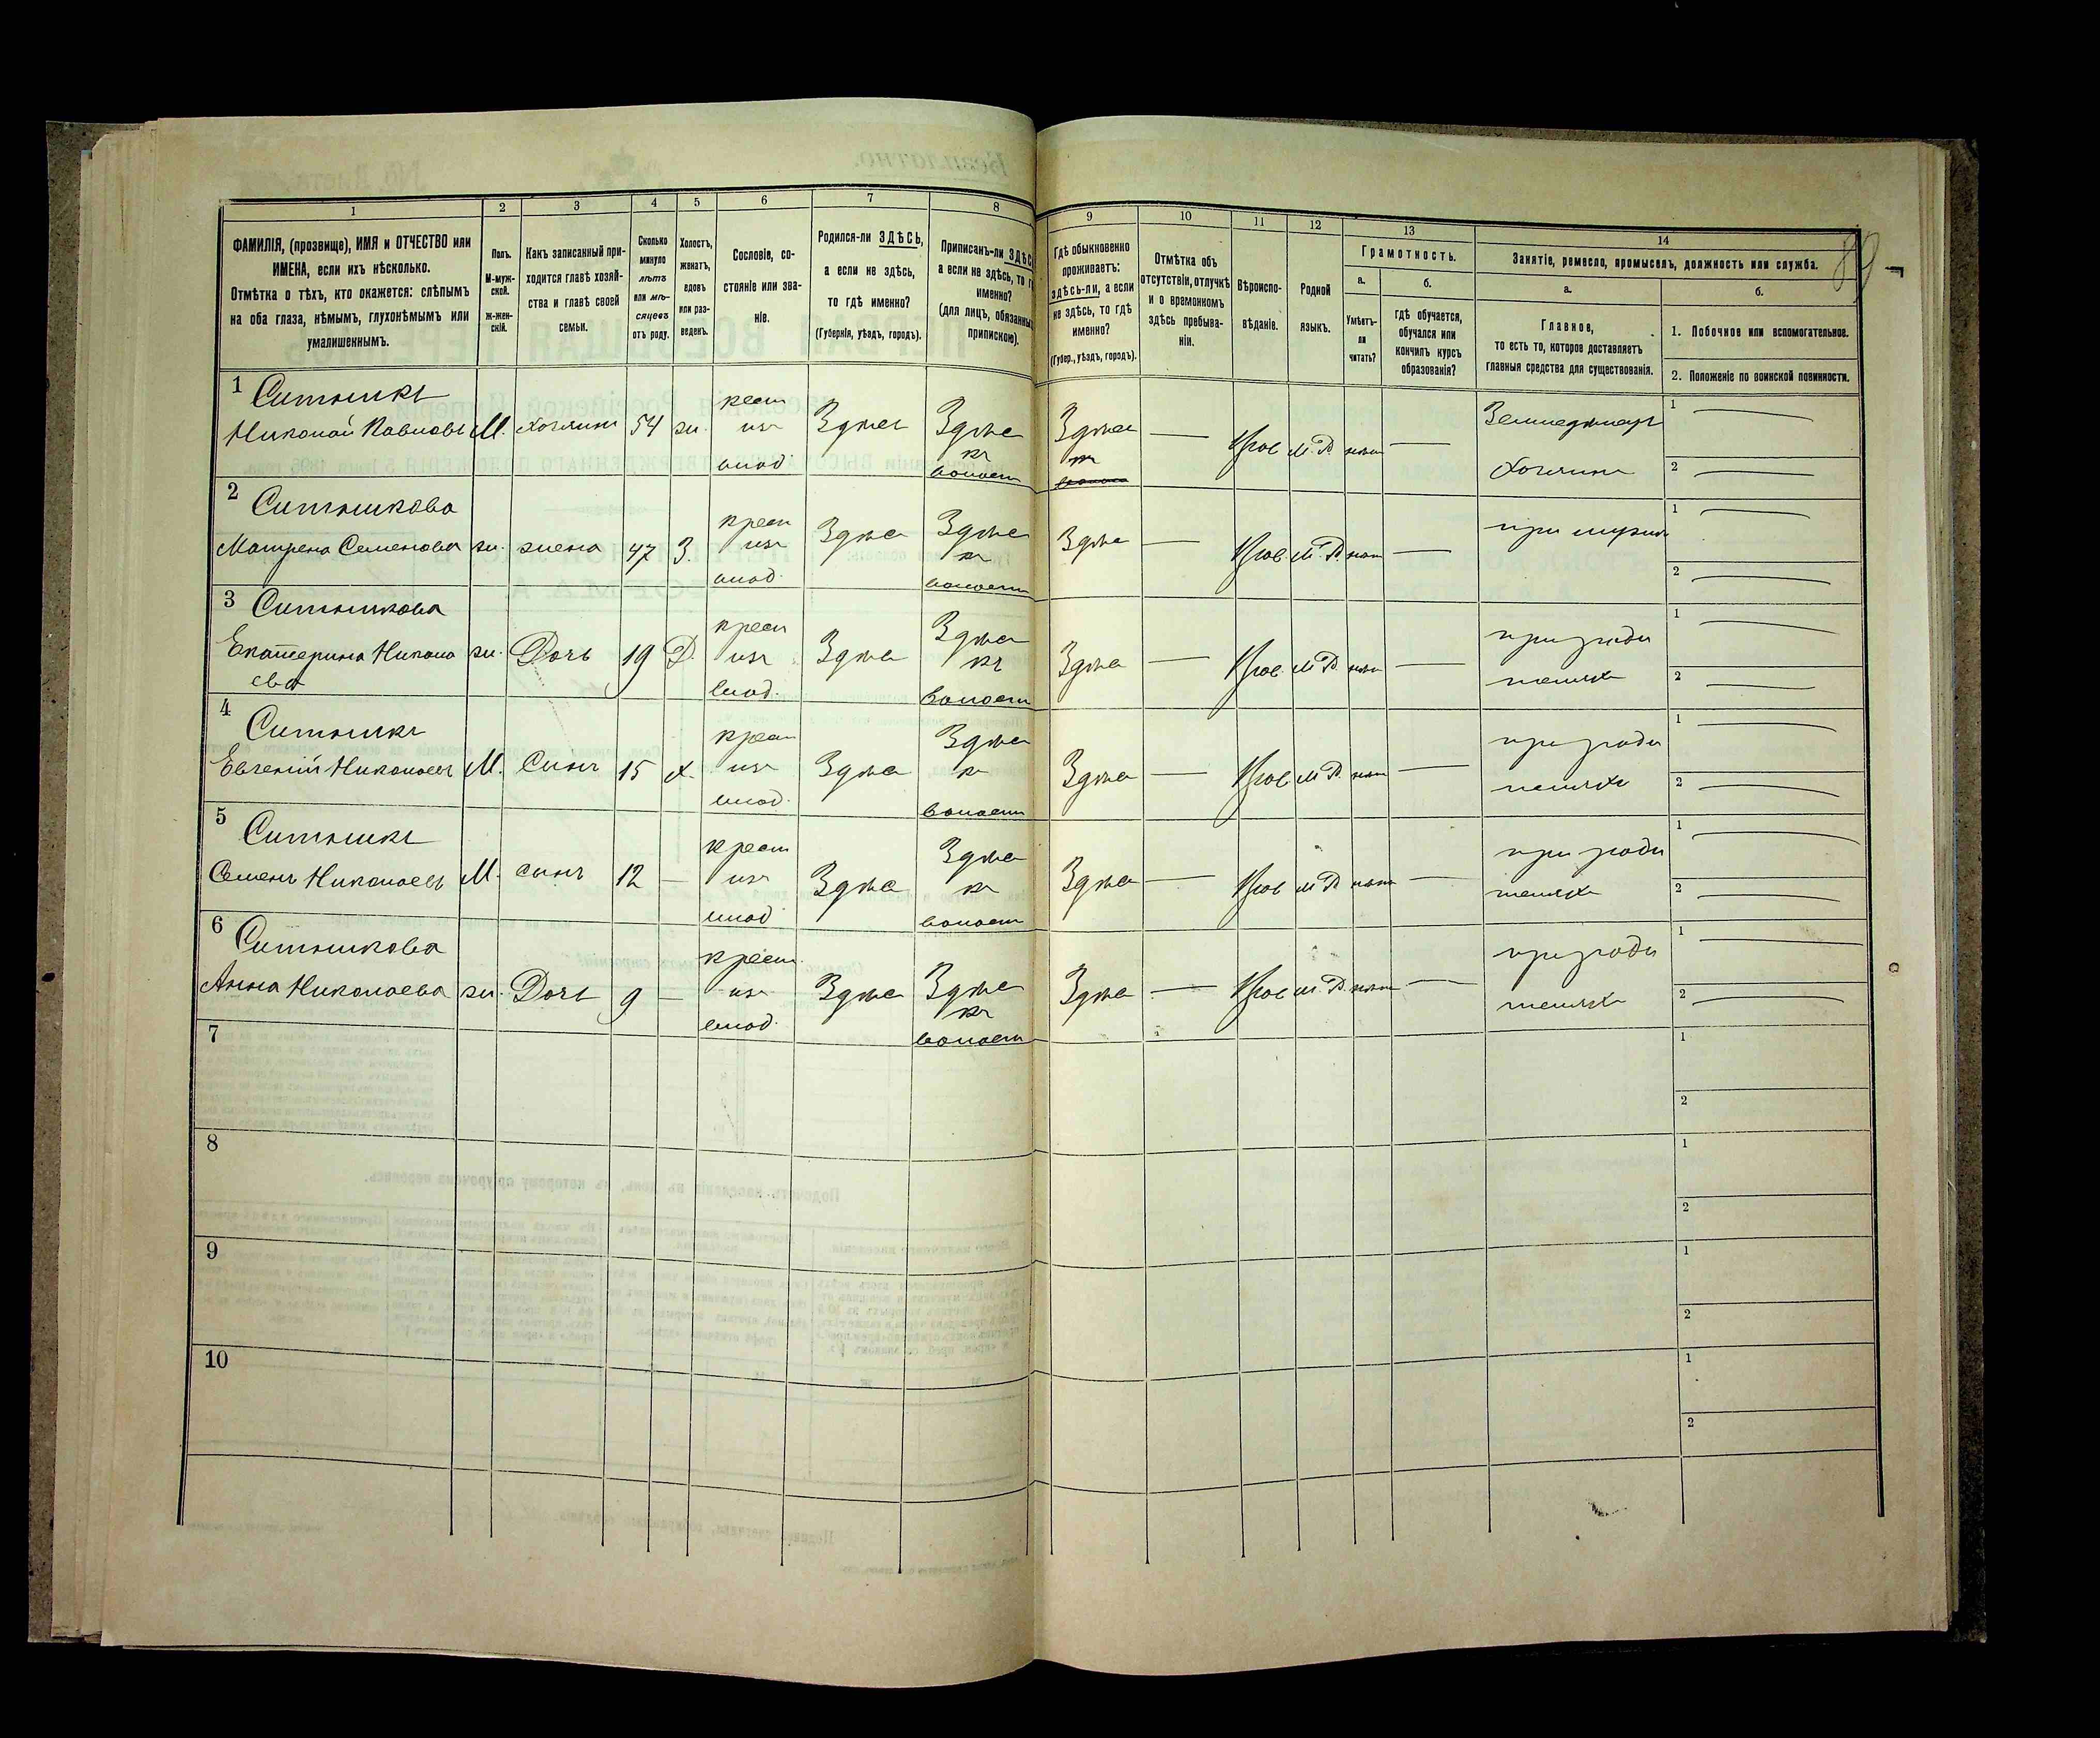 1 2 3 4 5 6 7 8 9 10 11 12 13 14
ФАМИЛІЯ, (прозвище), ИМЯ и ОТЧЕСТВО или
ИМЕНА, если ихъ нѣсколько.
Отмѣтка о тѣхъ, кто окажется: слѣпымъ
на оба глаза, нѣмымъ, глухонѣмымъ или
умалишеннымъ.
Полъ.
М-муж-
ской.
ж-жен-
скій.
Какъ записанный при-
ходится главѣ хозяй-
ства и главѣ своей
семьи.
Сколько
минуло
лѣтъ
или мѣ-
сяцевъ
отъ роду.
Холостъ,
женатъ,
вдовъ
или раз-
веденъ.
Сословіе, со-
стояніе или зва-
ніе.
Родился-ли ЗДѢСЬ,
а если не здѣсь,
то гдѣ именно?
(Губернія, уѣздъ, городъ).
Приписанъ-ли
а если не здѣсь, то
именно?
(для лицъ,
припискою).
Гдѣ обыкновенно
проживаетъ:
здѣсь-ли, а если
не здѣсь, то гдѣ
именно?
(Губер., уѣздъ, городъ).
Отмѣтка объ
отсутствіи, отлучкѣ
и о временномъ
здѣсь пребыва-
ніи.
Вѣроиспо-
вѣданіе.
Родной
языкъ.
Грамотность.
а.
Умѣетъ-
ли
читать?
б.
гдѣ обучается,
обучался или
кончилъ курсъ
образованія?
Занятіе, ремесло, промыселъ, должность или служба.
а.
Главное,
то есть то, которое доставляетъ
главныя средства для существованія.
б.
1. Побочное или вспомогательное.
2. Положеніе по воинской повинности.
1
Николай Павловъ М. хозяинъ 54 ж.
крест
изъ
влад.
Здѣсь
Здѣсь
къ
волост
Здѣсь
— Прав М.Р. —
хозяинъ
1 —
2 —
2
Матрена Семенова ж. жена 47 З.
крест
изъ
влад.
Здѣсь
Здѣсь
къ
волост
Здѣсь
— Прав. М.Р. —
при мужѣ
1 —
2 —
3
Екатерина Никола
ева
ж. Дочь 19 Д.
крест
изъ
влад.
Здѣсь
Здѣсь
къ
волост
Здѣсь
— Прав. М.Р. —
при роди
теляхъ
1 —
2 —
4
Евгеній Николаевъ М. Сынъ 15 х.
крест
изъ
влад.
Здѣсь
Здѣсь
къ
волост
Здѣсь
— Прав. М.Р. —
при роди
теляхъ
1 —
2 —
5
Семенъ Николаевъ М. сынъ 12 —
крест
изъ
влад
Здѣсь
Здѣсь
къ
волост
Здѣсь
— Прав М.Р —
при роди
теляхъ
1 —
2 —
6
Анна Николаева ж. Дочь 9 —
крест.
изъ
влад.
Здѣсь
Здѣсь
къ
волост
Здѣсь
— Прав М.Р. —
при роди
теляхъ
1 —
2 —
7
1
2
8
1
2
9
1
2
10
1
2